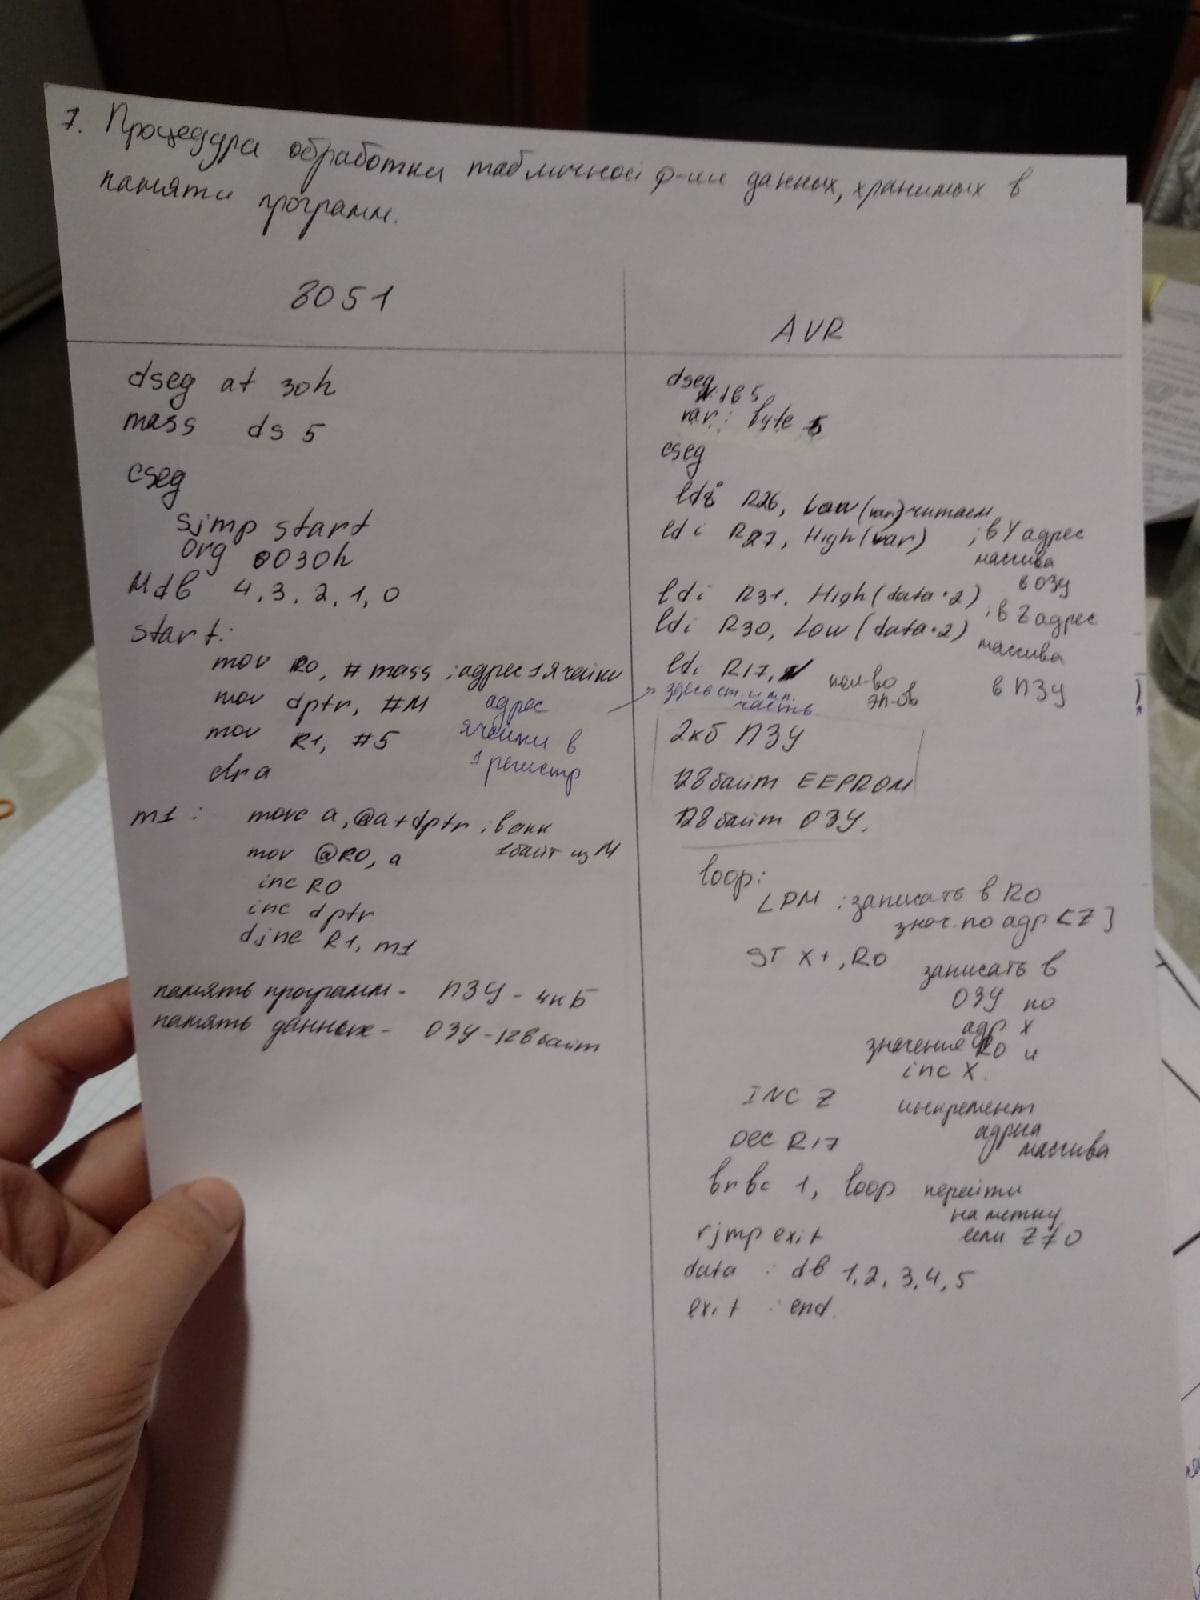 7. Процедура обработки табличной ф-ии данных, хранимых в
памяти программ.
8051
dseg at 30h
mass ds 5
cseg
sjmp start
org 0030h
M db 4, 3, 2, 1, 0
start:
mov R0, # mass ; адрес 1 ячейки
mov dptr, #M адрес
mov R1, #5 ячейки в
clr a 1 регистр
m1 : movc a, @a+dptr ; в акк
mov @R0, a 1 байт из M
inc R0
inc dptr
djne R1, m1
память программ - ПЗУ - 4кБ
память данных - ОЗУ - 128 байт
AVR
dseg
var: byte 5
cseg
ldi R26, Low(var) читаем
ldi R27, High(var) ; в Y адрес
массива
в ОЗУ
ldi R31, High(data*2) ; в Z адрес
ldi R30, Low(data*2) массива
ldi R17, кол-во эл-ов в ПЗУ
часть
2кб ПЗУ
128 байт EEPROM
128 байт ОЗУ.
loop:
LPM ; записать в R0
знач. по адр [Z]
ST X+, R0 записать в
ОЗУ по
адр X
значение R0 и
inc X.
INC Z инкремент
адреса
Dec R17 массива
brbc 1, loop перейти
на метку
rjmp exit если Z≠0
data : db 1,2,3,4,5
exit : end.